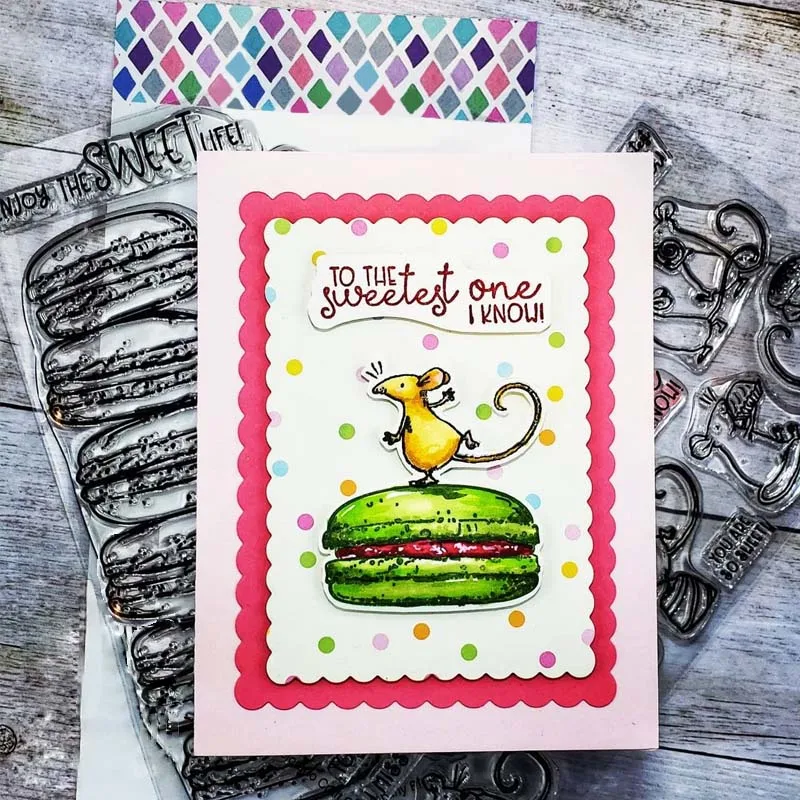 ENJOY THE SWEET LIFE!
TO THE
sweetest one
I KNOW!
KNOW!
YOU ARE
SO SWEET!